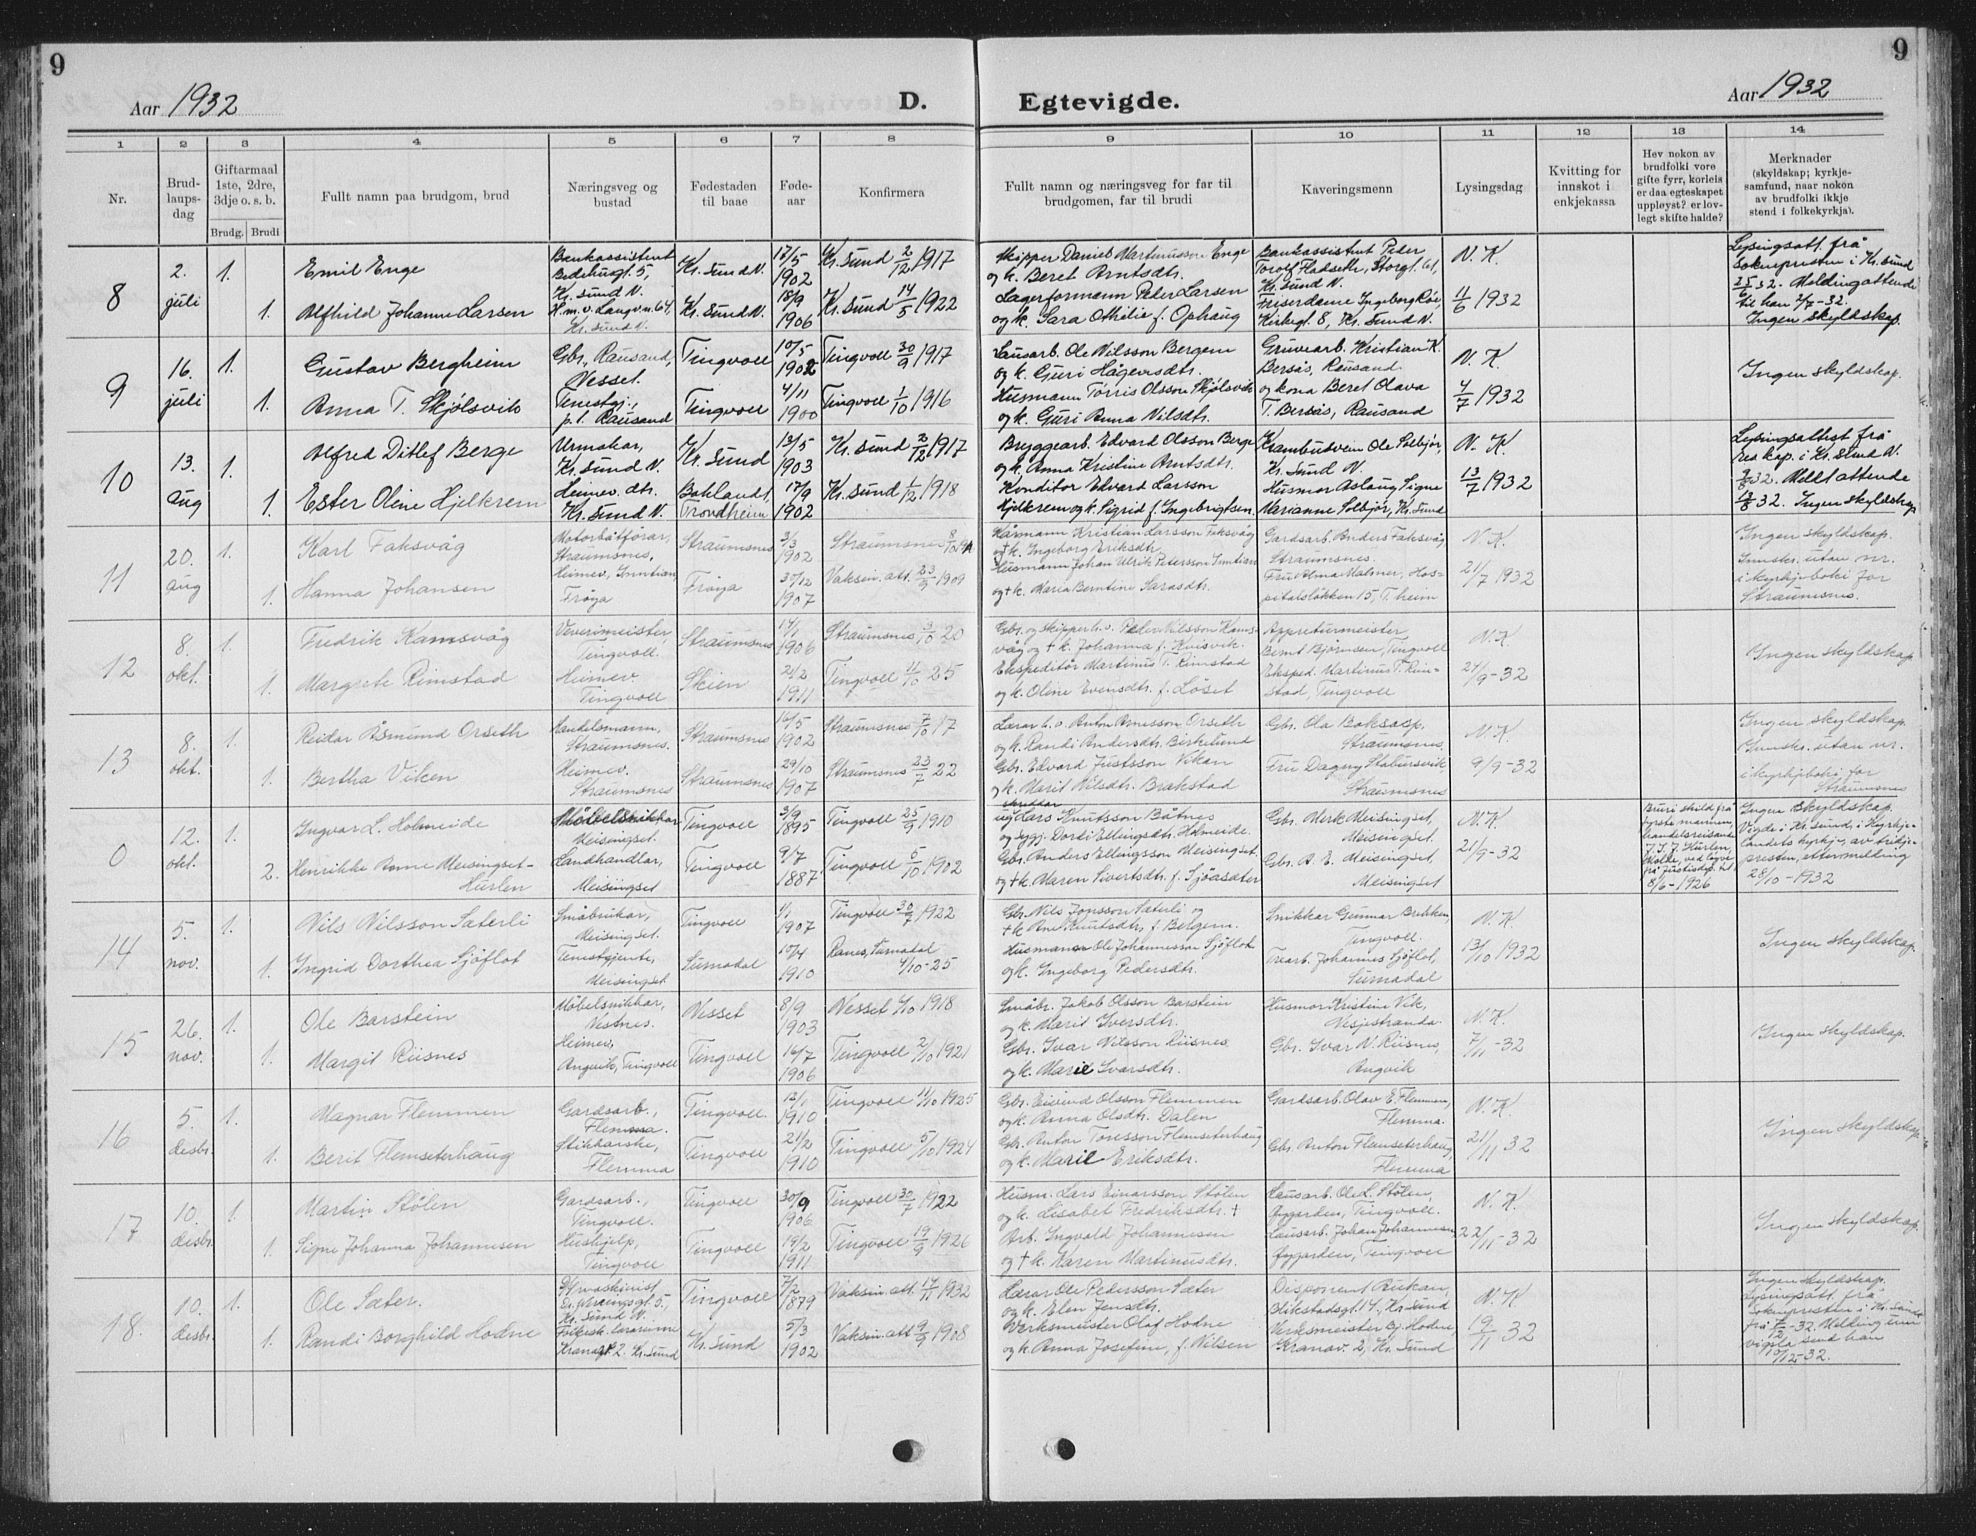 9
9
Aar 1932
D.
Egtevigde.
Aar 1932
1 2 3 4 5 6 7 8 9 10 11 12 13 14
Nr.
Brud-
laups-
dag
Giftarmaal
1ste, 2dre,
3dje o. s. b.
Brudg. Brudi
Fullt namn paa brudgom, brud
Næringsveg og
bustad
Fødestaden
til baae
Føde-
aar
Konfirmera
Fullt namn og næringsveg for far til
brudgomen, far til brudi
Kaveringsmenn
Lysingsdag
Kvitting for
innskot i
enkjekassa
Hev nokon av
brudfolki vore
gifte fyrr, korleis
er daa egteskapet
uppløyst? er lov-
legt skifte halde?
Merknader
(skyldskap; kyrkje-
samfund, naar nokon
av brudfolki ikkje
stend i folkekyrkja).
8
2.
juli
1.
Emil Enge
Bankassistent
Bedehusgt. 5,
Kr. sund N.
Kr. Sund N.
17/5
1902
Kr. sund 2/12 1917
Skipper Daniel Martinusson Enge
og k. Beret Arntsdtr.
Bankassistent Peder
Torolf Hadseth, Storgt. 61,
Kr. Sund N.
N. K.
Lysingsatt. frå
soknepresten i Kr. sund
1.
Alfhild Johanne Larsen
H. m. v. Langv. n. 64,
Kr. sund N.
Kr. Sund N.
18/9
1906
Kr. Sund 14/5 1922
Lagerformann Peter Larsen
og k. Sara Othilie f. Ophaug
Friserdame Ingeborg Røe,
Kirkegt. 8, Kr. Sund N.
11/6 1932
25/6 32. Melding attende
til han 2/7-32.
Ingen skyldskap.
9
16.
juli
1.
Gustav Bergheim
Gbr., Rausand,
Nesset.
Tingvoll
10/5
1902
Tingvoll 30/9 1917
Lausarb. Ole Nilsson Bergem
og k. Guri Hågensdtr.
Gruvearb. Kristian K.
Bersås, Rausand
N. K.
Ingen skyldskap.
1.
Anna T. Skjølsvik
Tenestgj.,
p. t. Rausand
Tingvoll
4/11
1900
Tingvoll 1/10 1916
Husmann Torris Olsson Skjølsvik
og k. Guri Anna Nilsdtr.
og kona Beret Olava
T. Bersås, Rausand
4/7 1932
10
13.
aug
1.
Alfred Ditlef Berge
Urmakar,
Kr. Sund N.
Kr. Sund
13/5
1903
Kr. sund 2/12 1917
Bryggearb. Edvard Olsson Berge
og k. Anna Kristine Arntsdtr.
Krambusvein Ole Solbjør,
Kr. Sund N.
N. K.
Lysingsattest frå
res. kap. i Kr. Sund N.
1.
Ester Oline Hjelkrem
Heimev. dtr.
Kr. Sund N.
Baklandt,
Trondheim
17/9
1902
Kr. Sund 1/12 1918
Konditor Edvard Larsson
Hjelkrem og k. Sigrid f. Ingebrigtsen
Husmor Aslaug Signe
Marianne Solbjør, Kr. Sund
13/7 1932
3/8 32. Meldt attende
13/8 32. Ingen skyldskap
11
20.
aug
1.
Karl Faksvåg
Motorbåtførar,
Straumsnes,
Straumsnes
3/3
1902
Straumsnes
Kårmann Kristian Larsson Faksvåg
og † k. Ingeborg Eriksdtr.
Gardsarb. Anders Faksvåg
Straumsnes.
N. K.
Ingen skyldskap.
Innskr. utan nr.
1.
Hanna Johansen
Heimev, Inntian,
Frøya
Frøya
30/12
1907
Vaksin. att. 23/9 1909
Husmann Johan Ulrik Petersson Inntian
og † k. Maria Berntine Larasdtr.
Fru Alma Malmer, Hos-
pitalsløkken 15, T. heim
21/7 1932
i kyrkjeboki for
Straumsnes.
12
8.
okt.
1.
Fredrik Kamsvåg
Veverimeister,
Tingvoll.
Straumsnes
14/1
1906
Straumsnes 3/10 20
Gbr. og skipper b. v. Peder Nilsson Kams-
våg og † k. Johanna f. Kvisvik.
Appreturmeister
Bernt Bjørnsen, Tingvoll
N. K.
Ingen skyldskap
1.
Margrete Rimstad
Heimev
Tingvoll
Skien
21/2
1911
Tingvoll 11/10 25
Ekspeditør Martinus T. Rimstad
og k. Oline Evensdtr. f. Løset
Eksped. Martinus T. Rim-
stad, Tingvoll
21/9-32
13
8.
okt.
1.
Reidar Åsmund Orseth
Handelsmann,
Straumsnes.
Straumsnes
16/5
1902
Straumsnes 7/10 17
Lærar b. v. Anton Arnesson Orseth
og k. Randi Andersdtr. Birkelund
Gbr. Ola Boksasp,
Straumsnes
N. K.
Ingen skyldskap.
Innskr. utan nr.
1.
Bertha Viken
Heimev.
Straumsnes
Straumsnes
29/10
1907
Straumsnes 23/7 22
Gbr. Edvard Justsson Vikan
og k. Marit Nilsdtr. Brakstad
Fru Dagny Stabursvik,
Straumsnes
9/9-32
i kyrkjeboki for
Straumsnes
0
12.
okt.
1.
Ingvar L. Holmeide
Møbelsnikkar
Meisingset.
Tingvoll
3/9
1895
Tingvoll 25/9 1910
skreddar
ug Lars Knutsson Båtnes
og ugj. Dordi Ellingsdtr. Holmeide.
Gbr. Merk Meisingset,
Meisingset.
N. K.
Bruri skild frå
fyrste mannen,
handelsreisande
J. S. J. Hurlen,
Molde, ved løyve
frå Justisdep. til
8/6-1926
Ingen skyldskap.
Vigde i Kr. sund, i Kyrkje-
landets kyrkje, av tridje-
presten, etter melding
28/10-1932
2.
Henrikke Anne Meisingset-
Hurlen
Landhandlar,
Meisingset
Tingvoll
9/7
1887
Tingvoll 5/10 1902
Gbr. Anders Ellingsson Meisingset.
og † k. Maren Sivertsdtr. f. Sjøasæter
Gbr. A. E. Meisingset,
Meisingset
21/9-32
14
5.
nov.
1.
Nils Nilsson Sæterli
Småbrukar,
Meisingset.
Tingvoll
1/1
1907
Tingvoll 30/7 1922
Gbr. Nils Jonsson Sæterli og
† k. Ane Knutsdtr. f. Belgem.
Snikkar Gunnar Brekken,
Tingvoll.
N. K.
Ingen skyldskap.
1.
Ingrid Dorthea Sjøflot
Tenestejente,
Meisingset
Surnadal
10/4
1910
Ranes, Surnadal
4/10-25
Husmann Ole Johannesson Sjøflot
og k. Ingeborg Pedersdtr.
Trearb. Johannes Sjøflot,
Surnadal
13/10 1932
15
26.
nov.
1.
Ole Barstein
Møbelsnikkar,
Vestnes.
Nesset
8/9
1903
Nesset 6/10 1918
Småbr. Jakob Olsson Barstein
og k. Marit Iversdtr.
Husmor Kristine Vik,
Vesjestranda.
N. K.
Ingen skyldskap.
1.
Margit Riisnes
Heimev,
Angvik, Tingvoll
Tingvoll
16/7
1906
Tingvoll 2/10 1921
Gbr. Ivar Nilsson Riisnes
og k. Marie Ivarsdtr.
Gbr. Ivar N. Riisnes,
Angvik
7/11-32
16
5.
desbr.
1.
Magnar Flemmen
Gardsarb.,
Flemma.
Tingvoll.
12/1
1910
Tingvoll 11/10 1925
Gbr. Eivind Olsson Flemmen
og k. Anna Olsdtr. Dalen
Gardsarb. Olav E. Flemmen,
Flemma.
N. K.
Ingen skyldskap.
1.
Berit Flemsæterhaug
Strikkarske,
Flemma
Tingvoll
21/2
1910
Tingvoll 5/10 1924
Gbr. Anton Toresson Flemsæterhaug
og k. Marie Eriksdtr.
Gbr. Anton Flemsæterhaug
Flemma
21/11 32
17
10.
desbr.
1.
Martin Stølen
Gardsarb.,
Tingvoll.
Tingvoll
30/9
1906
Tingvoll 30/7 1922
Husm. Lars Einarsson Stølen
og k. Lisabet Fredriksdtr. †
Lausarb. Ole L. Stølen,
Øygarden, Tingvoll.
N. K.
Ingen skyldskap.
1.
Signe Johanna Johannesen
Hushjelp,
Tingvoll
Tingvoll
19/2
1911
Tingvoll 19/9 1926
Arb. Ingvald Johannesen
og † k. Karen Martinusdtr.
Lausarb. Johan Johannesen
Øygarden, Tingvoll
22/11-32
18.
10.
desbr.
1.
Ole Sæter.
Kr. Sund N.
Tingvoll
7/2
1879
Vaksin. att. 17/11 1932
Lærar Ole Pedersson Sæter
og k. Elen Jensdtr.
Disponent Rukan,
Blikstadsgt. 14, Kr. Sund
N. K.
Ingen skyldskap.
Lysingsatt. frå
soknepresten i Kr. Sund
1.
Randi Borghild Hodne
Folkesk. lærarinne
Kranagt 2. Kr. Sund
Kr. Sund
5/3
1902
Vaksin. att 9/9 1908
Verksmeister Olaf Hodne
og k. Anna Josefine, f. Nilsen
Verksmeister Bj. Hodne,
Kranav. 2, Kr. Sund
19/11 32
frå 7/12-32. Melding um
vigsla send han
10/12-32.